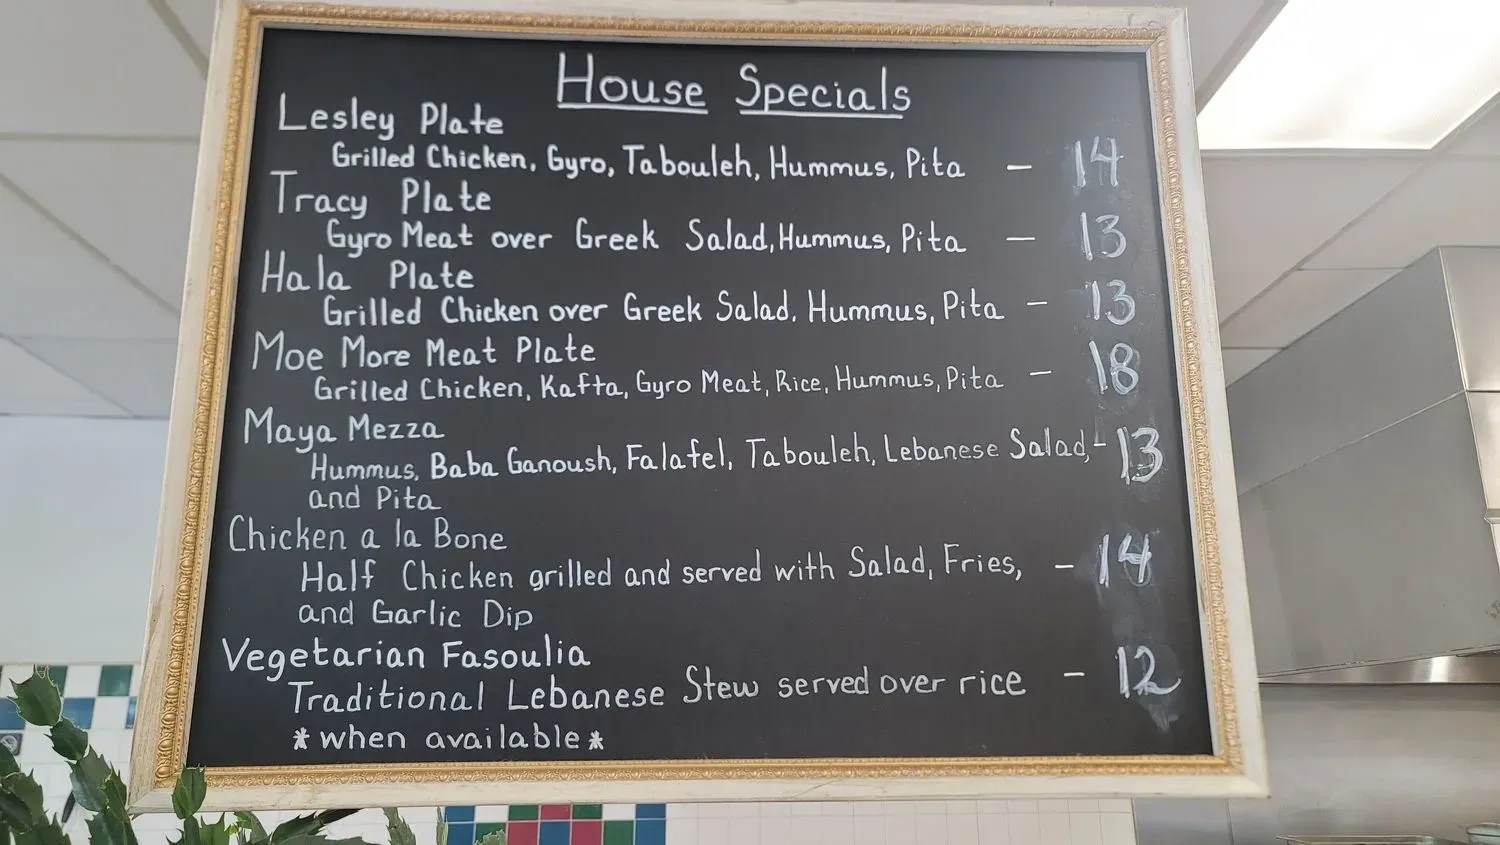 House Specials
Lesley Plate
Grilled Chicken, Gyro, Tabouleh, Hummus, Pita – 14
Tracy Plate
Gyro Meat over Greek Salad, Hummus, Pita – 13
Hala Plate
Grilled Chicken over Greek Salad. Hummus, Pita – 13
Moe More Meat Plate
Grilled Chicken, Kafta, Gyro Meat, Rice, Hummus, Pita – 18
Maya Mezza
Hummus, Baba Ganoush, Falafel, Tabouleh, Lebanese Salad, – 13
and Pita
Chicken a la Bone
Half Chicken grilled and served with Salad, Fries, – 14
and Garlic Dip
Vegetarian Fasoulia
Traditional Lebanese Stew served over rice – 12
*when available*